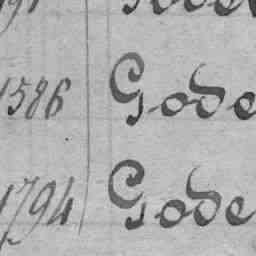 1586 Gode
1794 Gode